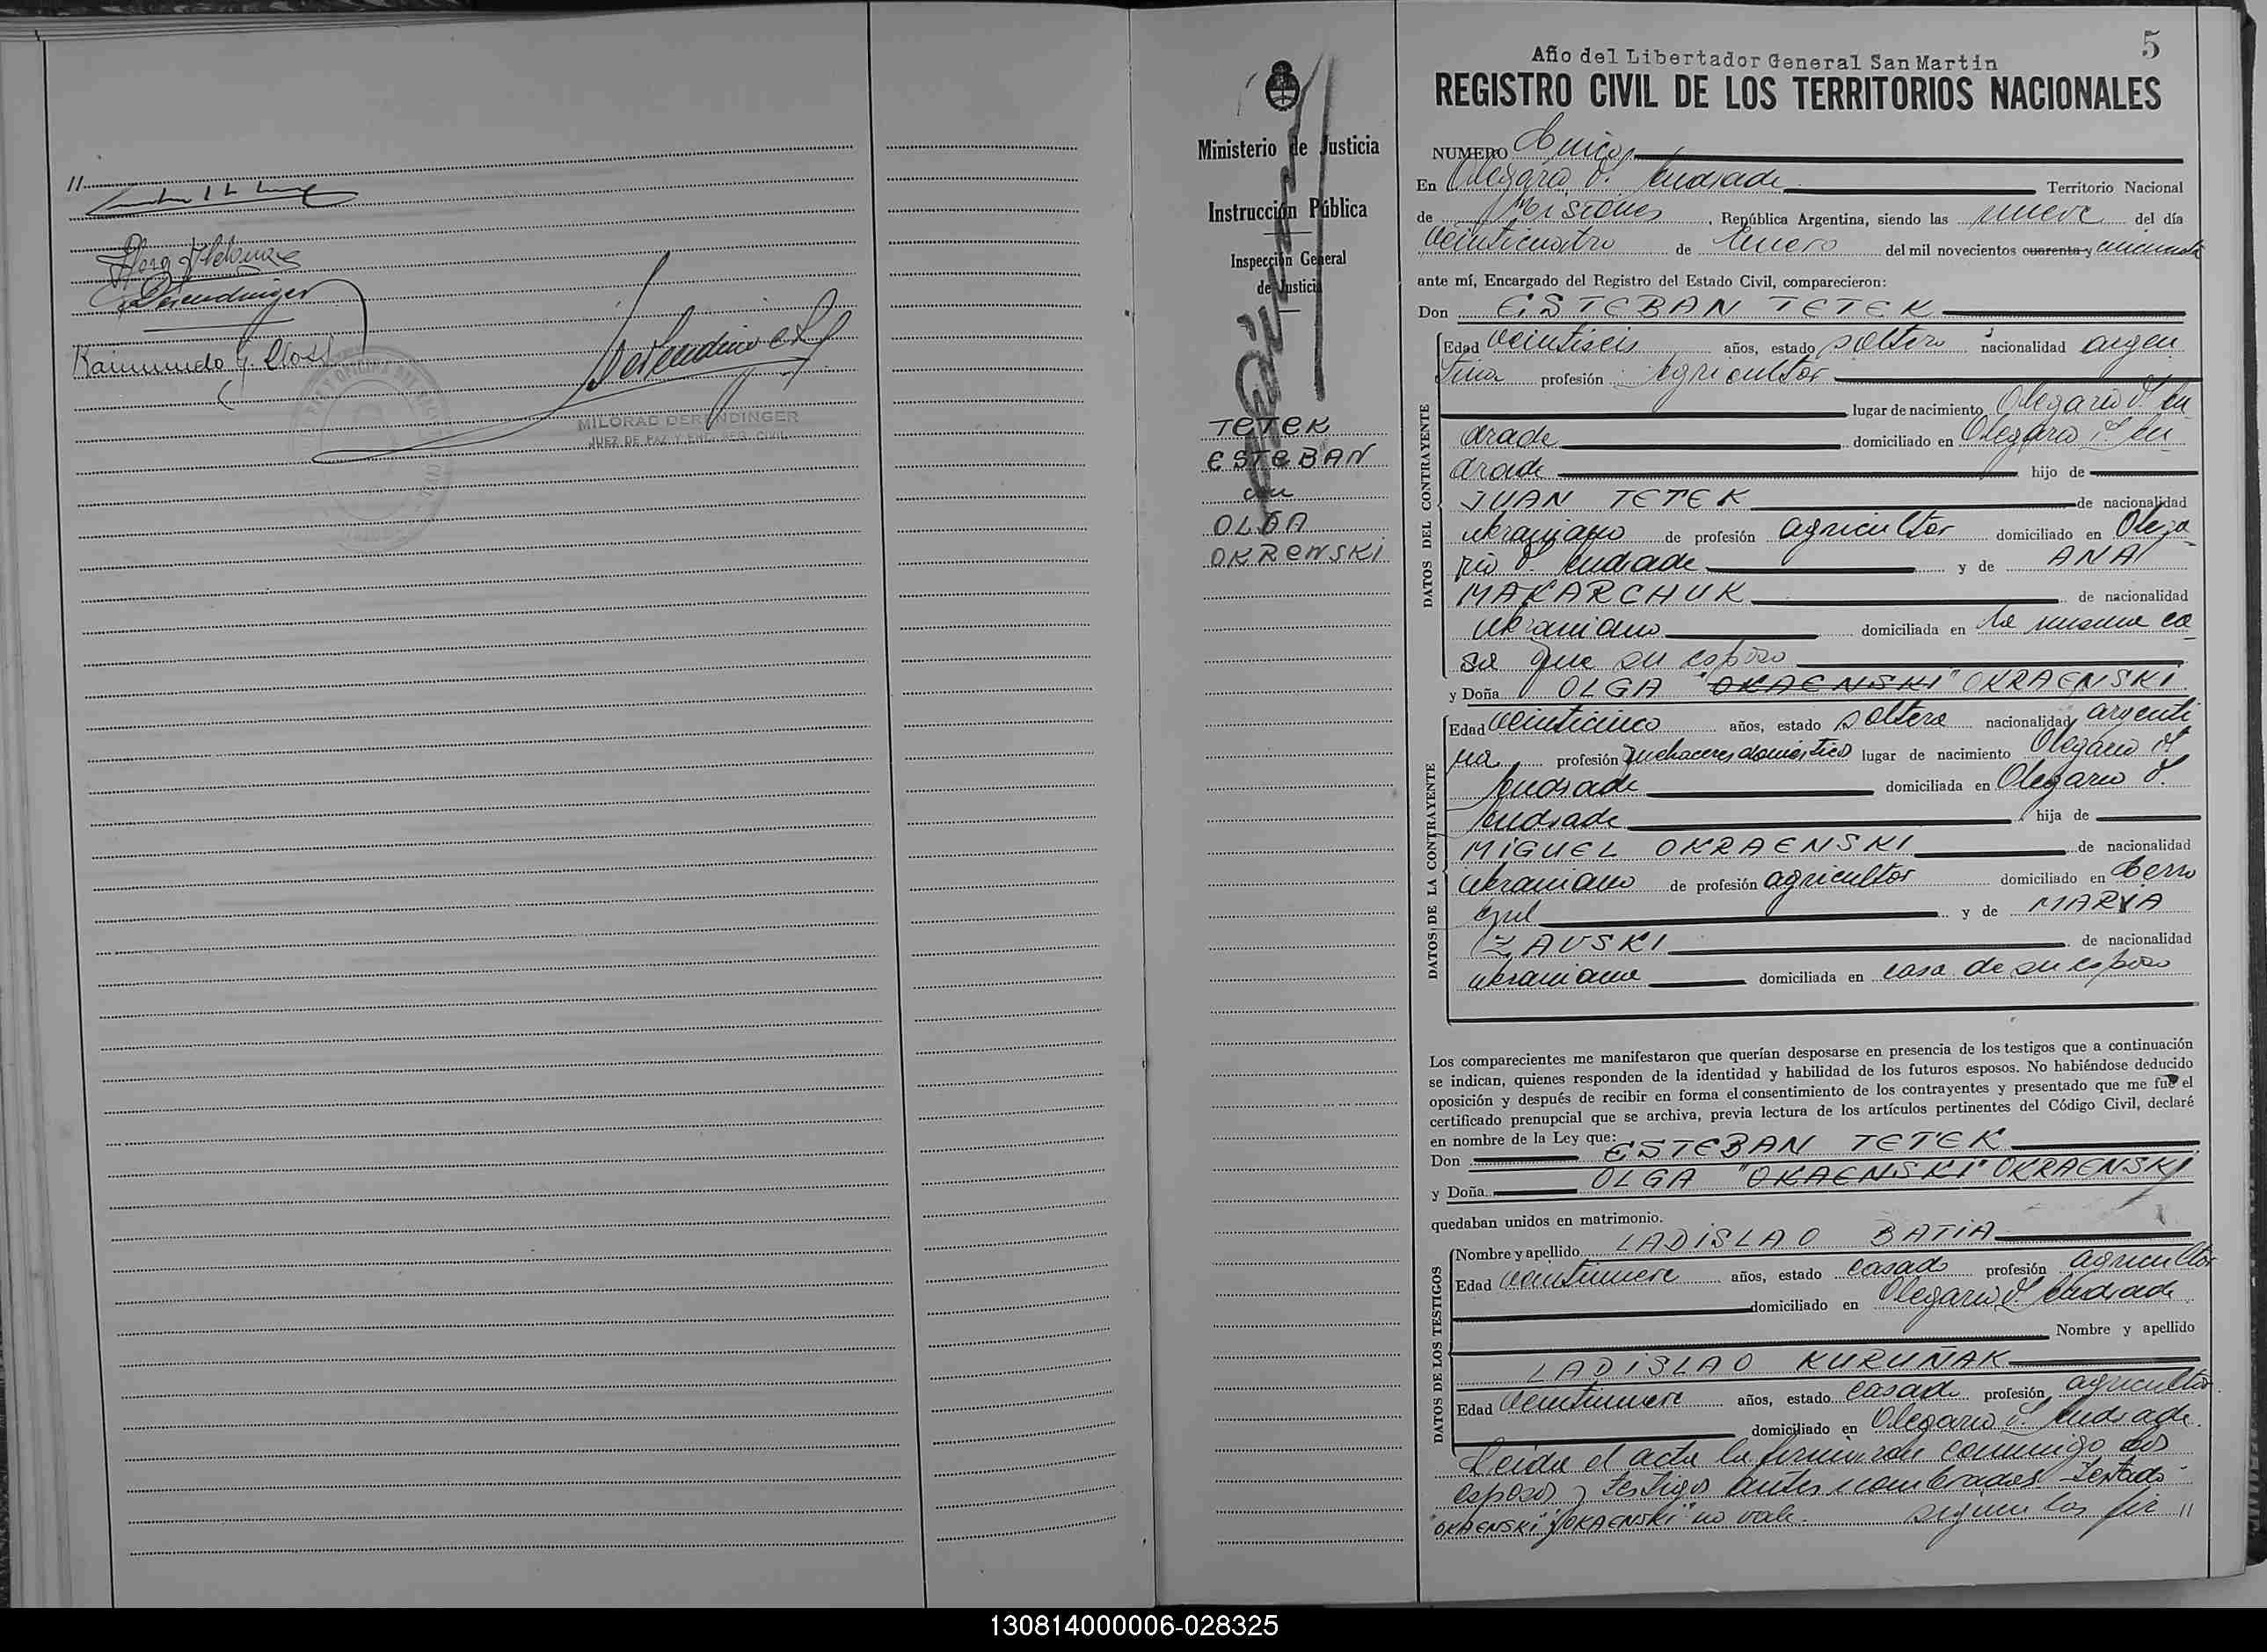 //
Derendinger
Raimundo
MILORAD DERENDINGER
JUEZ DE PAZ Y ENC. REG. CIVIL
Ministerio de Justicia
Instrucción Pública
Inspección General
de Justicia
TETEK
ESTEBAN
con
OLGA
OKRENSKI
5
Año del Libertador General San Martin
REGISTRO CIVIL DE LOS TERRITORIOS NACIONALES
NUMERO Cinco
En Olegario V. Andrade Territorio Nacional
de Misiones, República Argentina, siendo las nueve del día
veinticuatro de Enero del mil novecientos cuarenta y cincuenta
ante mí, Encargado del Registro del Estado Civil, comparecieron:
Don ESTEBAN TETEK
DATOS DEL CONTRAYENTE
Edad veintiseis años, estado soltero nacionalidad argen
tina profesión agricultor
lugar de nacimiento Olegario V. An
drade domiciliado en Olegario V. An
drade hijo de
JUAN TETEK de nacionalidad
ukraniano de profesión agricultor domiciliado en Olega-
rio V. Andrade y de ANA
MAKARCHUK de nacionalidad
ukraniano domiciliada en la misma ca-
sa que su esposo
y Doña OLGA "OKAENSKI" OKRAENSKI
DATOS DE LA CONTRAYENTE
Edad veinticinco años, estado soltera nacionalidad argenti
na profesión quehaceres domésticos lugar de nacimiento Olegario V.
Andrade domiciliada en Olegario V.
Andrade hija de
MIGUEL OKRAENSKI de nacionalidad
ukraniano de profesión agricultor domiciliado en Cerro
Azul y de MARIA
ZAUSKI de nacionalidad
ukraniana domiciliada en casa de su esposo
Los comparecientes me manifestaron que querían desposarse en presencia de los testigos que a continuación
se indican, quienes responden de la identidad y habilidad de los futuros esposos. No habiéndose deducido
oposición y después de recibir en forma el consentimiento de los contrayentes y presentado que me fue el
certificado prenupcial que se archiva, previa lectura de los artículos pertinentes del Código Civil, declaré
en nombre de la Ley que:
Don ESTEBAN TETEK
y Doña OLGA "OKAENSKI" OKRAENSKI
quedaban unidos en matrimonio.
DATOS DE LOS TESTIGOS
Nombre y apellido LADISLAO BATIA
Edad veintinueve años, estado casado profesión agricultor
domiciliado en Olegario V. Andrade
Nombre y apellido
LADISLAO KURUÑAK
Edad veintinueve años, estado casado profesión agricultor
domiciliado en Olegario V. Andrade.
Leída el acta la firmaron conmigo los
esposos y testigos antes nombrados. Testado-
"OKAENSKI" y "OKAENSKI" no vale. siguen las fir //
130814000006-028325